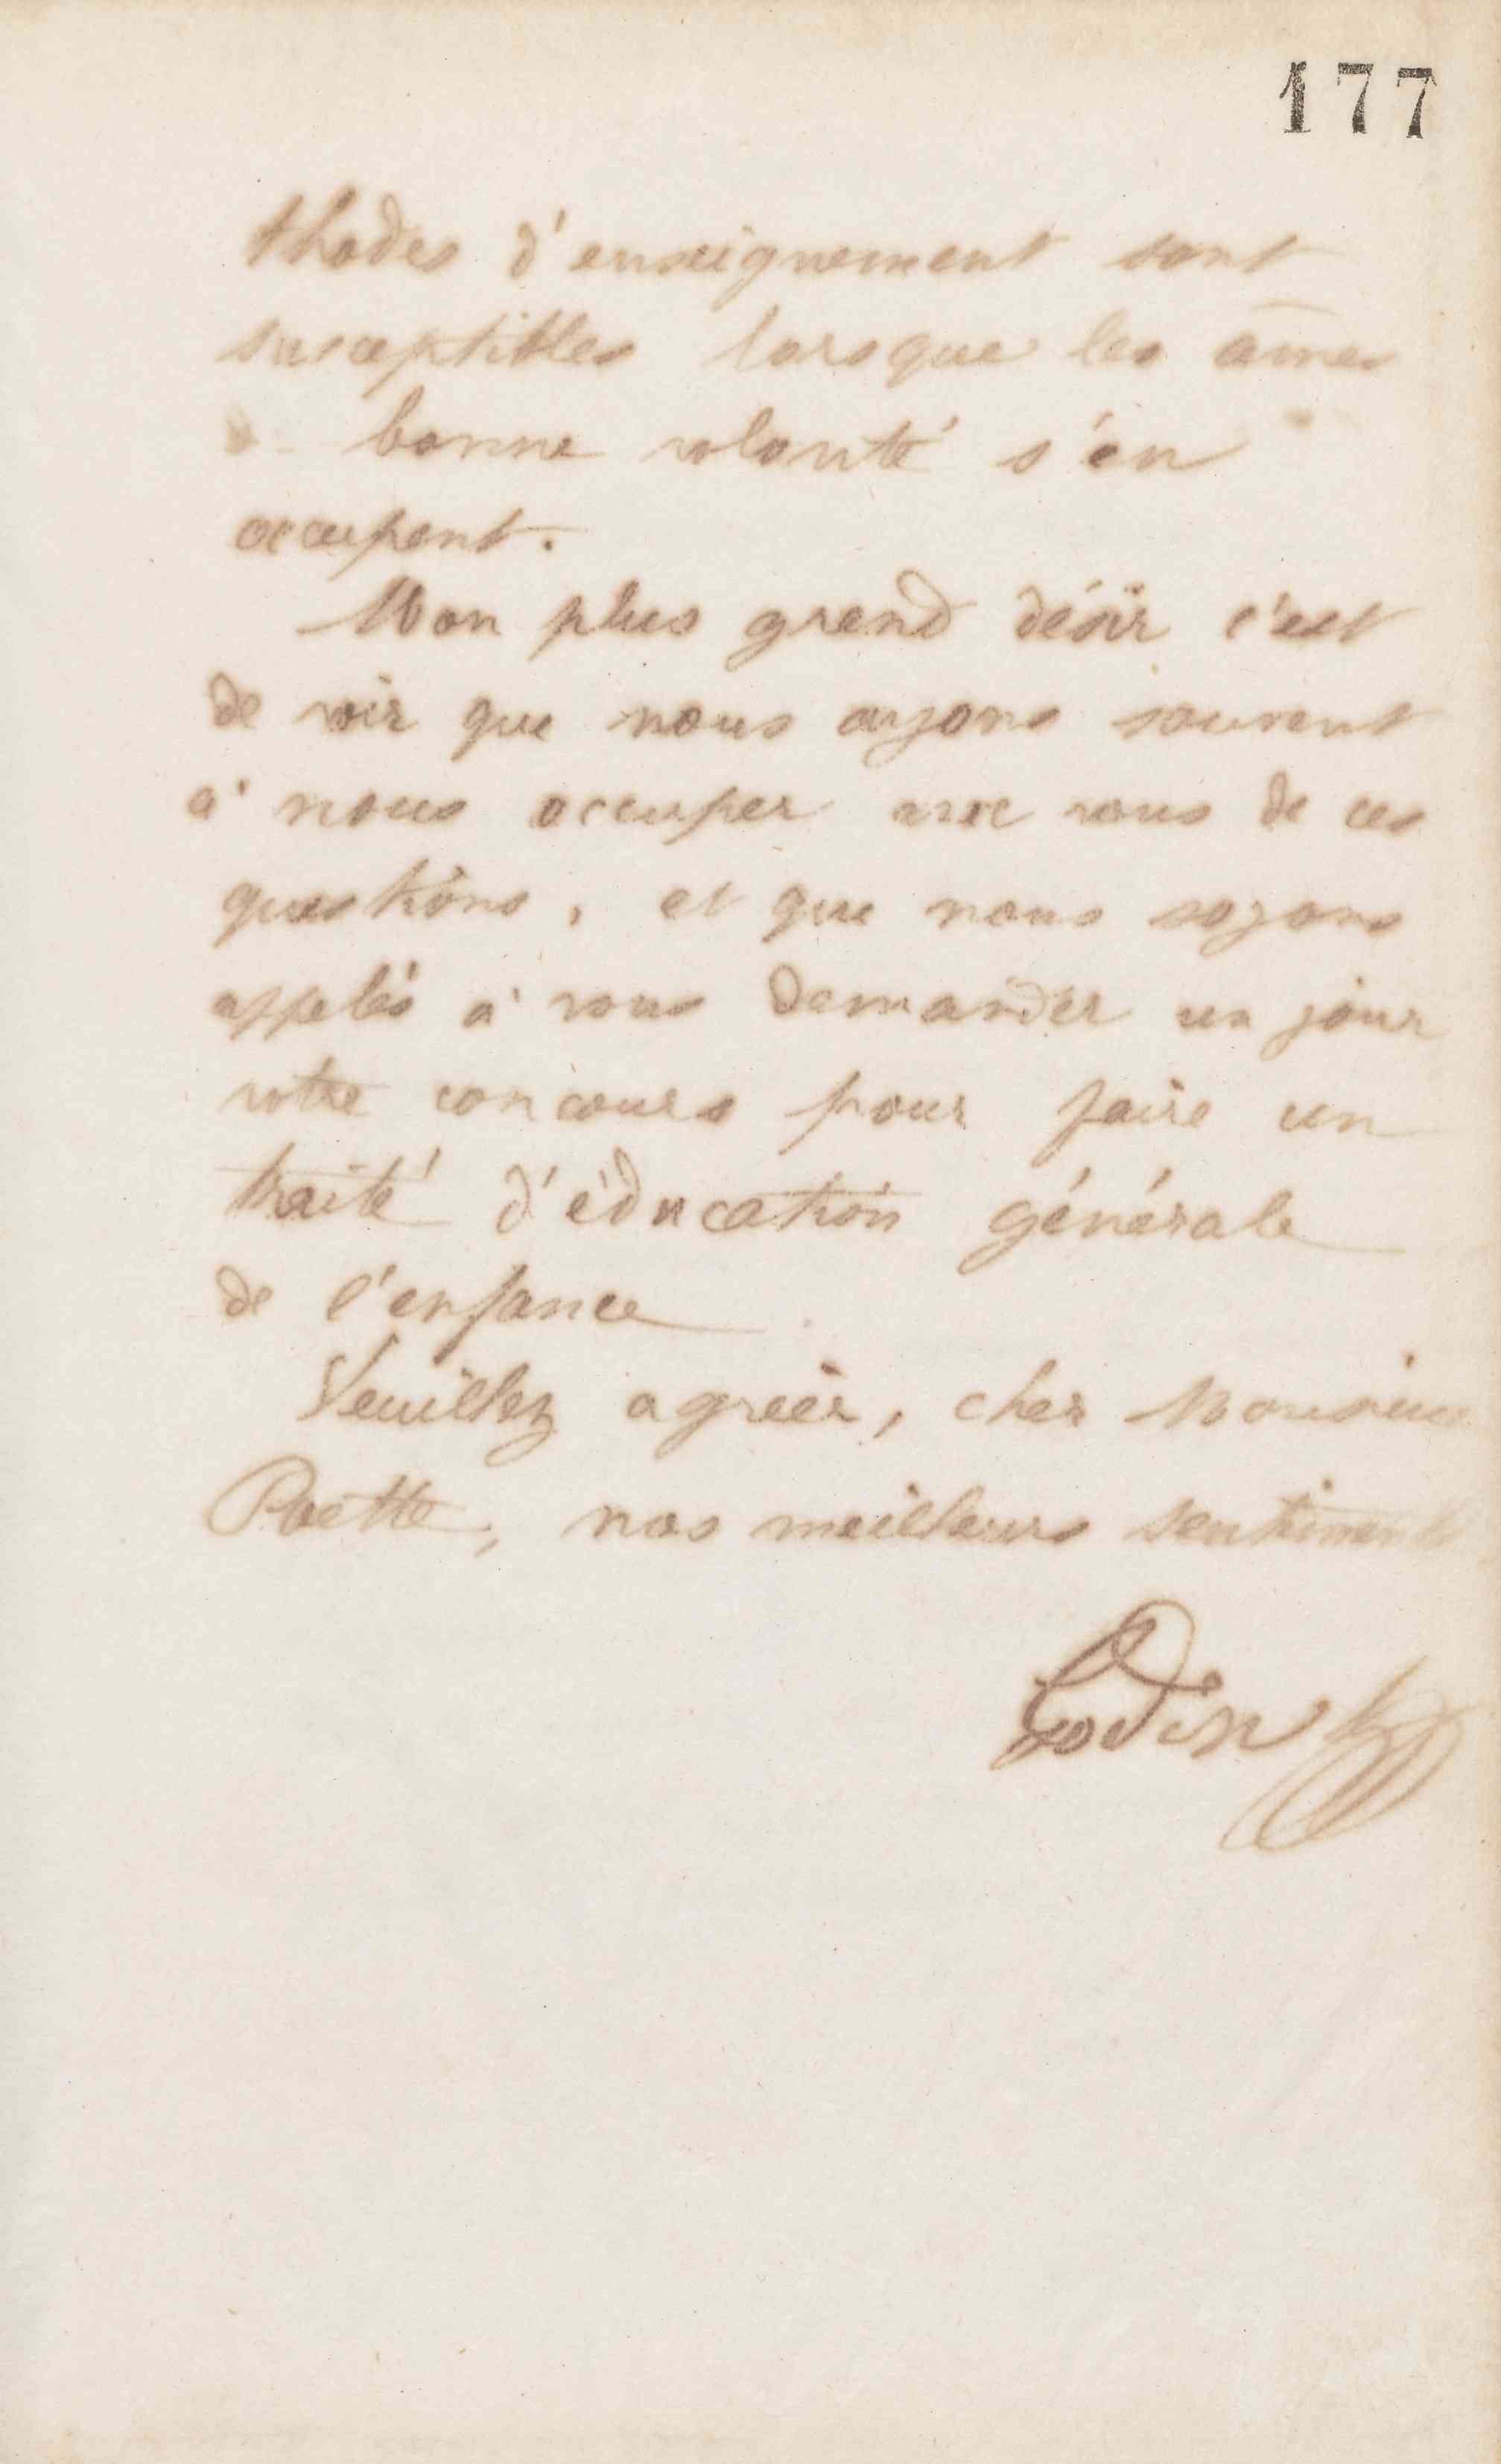 177
thodes d'enseignement sont
susceptibles lorsque les âmes
bonne volonté s'en
occupent.
Mon plus grand désir c'est
de voir que nous ayons souvent
à nous occuper avec vous de ces
questions, et que nous soyons
appelés à vous demander un jour
votre concours pour faire un
traité d'éducation générale
de l'enfance
Veuillez agréer, cher Monsieur
Poette, nos meilleurs sentiments
Godin